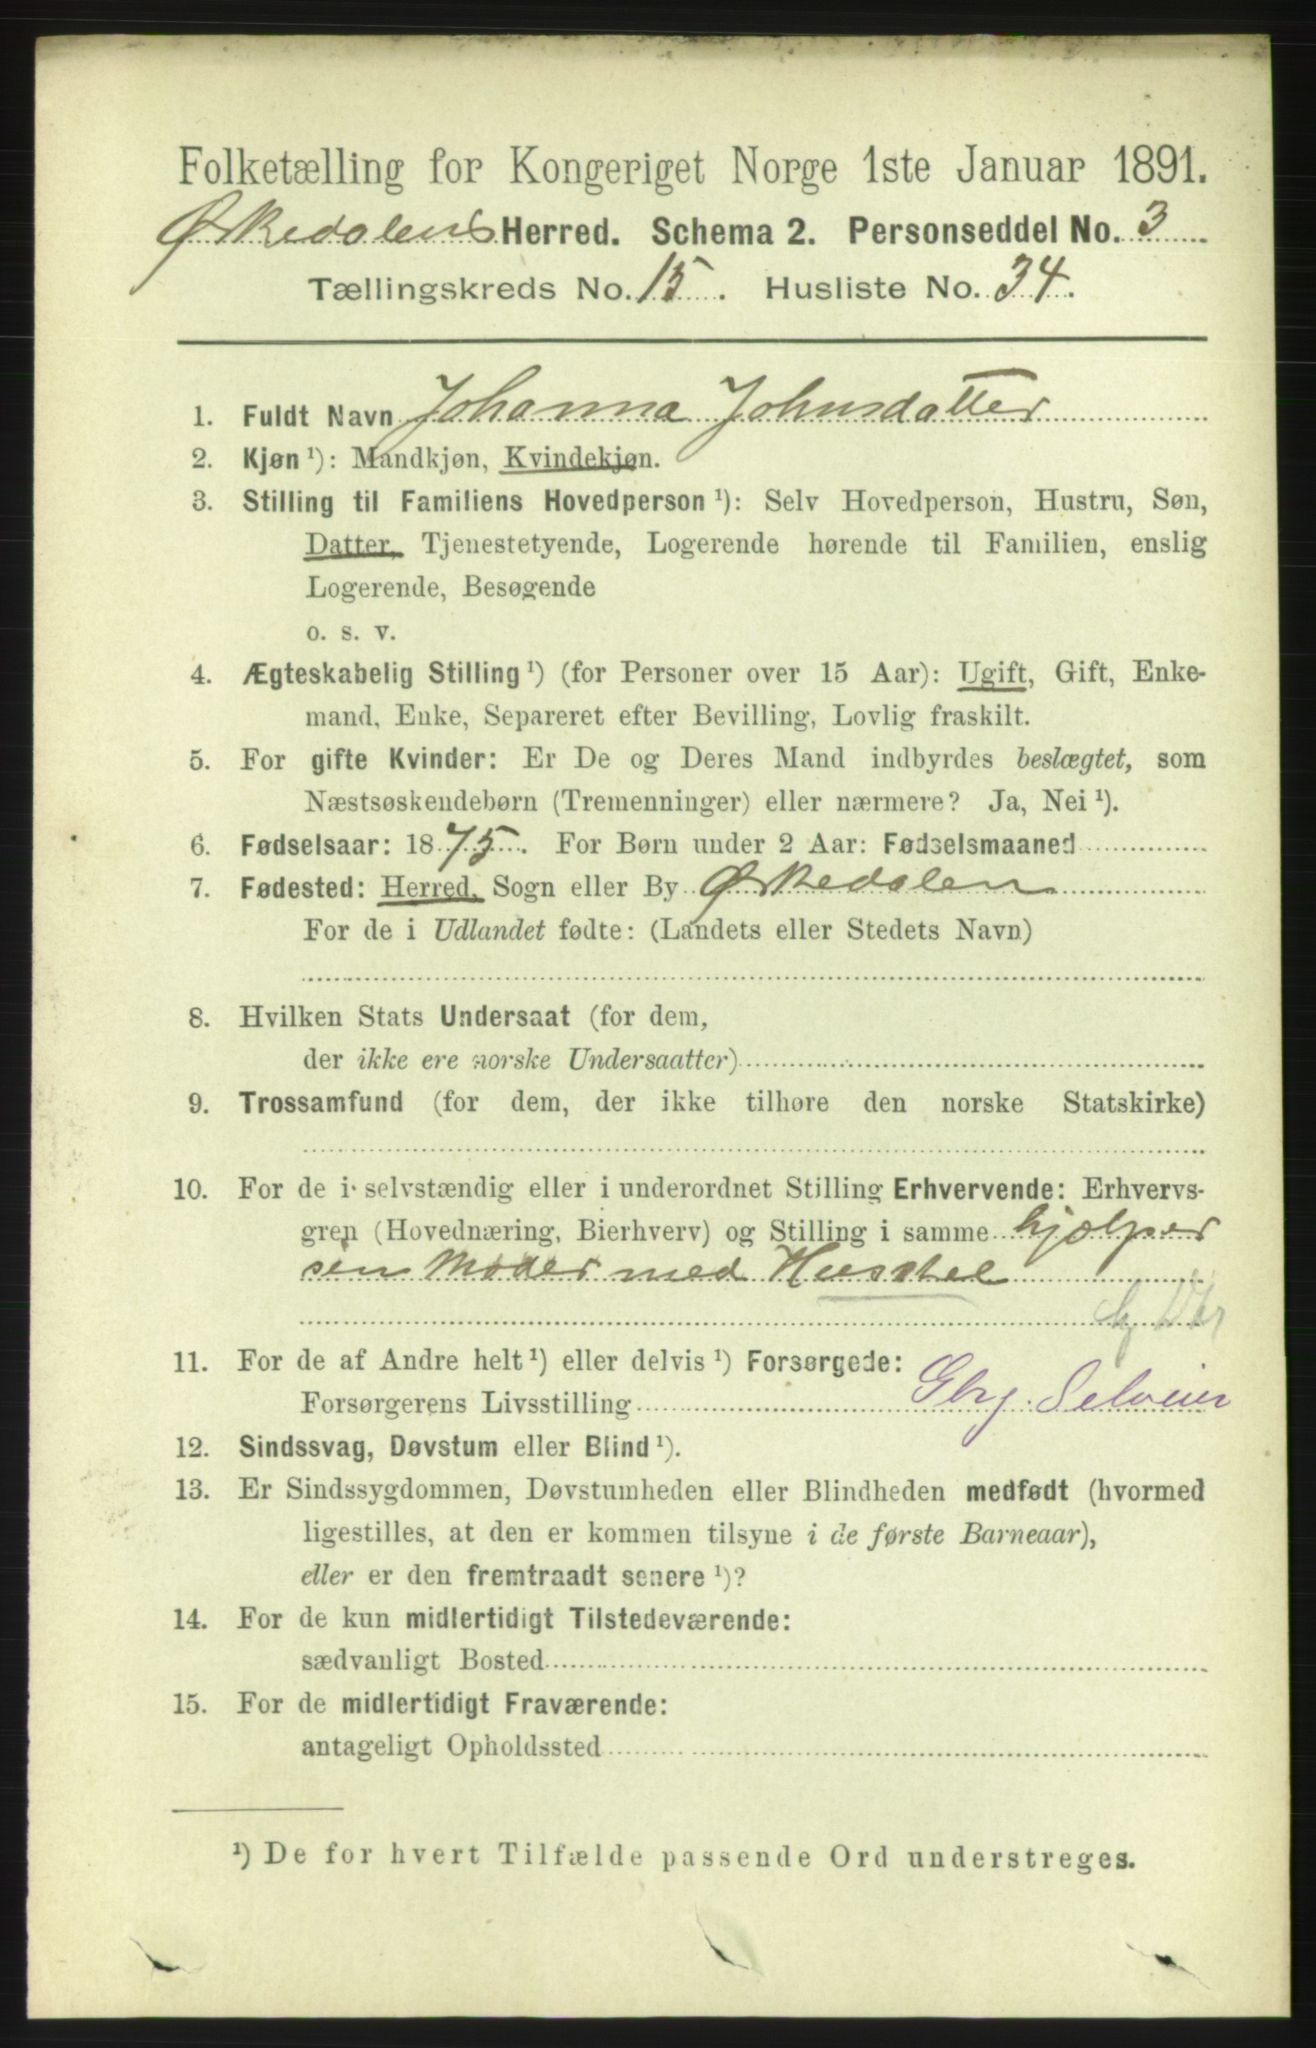 Folketælling for Kongeriget Norge 1ste Januar 1891.
Ørkedalens Herred. Schema 2. Personseddel No. 3
Tællingskreds No. 15. Husliste No. 34.
1. Fuldt Navn Johanna Johnsdatter
2. Kjøn ¹): Mandkjøn, Kvindekjøn.
3. Stilling til Familiens Hovedperson ¹): Selv Hovedperson, Hustru, Søn,
Datter, Tjenestetyende, Logerende hørende til Familien, enslig
Logerende, Besøgende
o. s. v.
4. Ægteskabelig Stilling ¹) (for Personer over 15 Aar): Ugift, Gift, Enke-
mand, Enke, Separeret efter Bevilling, Lovlig fraskilt.
5. For gifte Kvinder: Er De og Deres Mand indbyrdes beslægtet, som
Næstsøskendebørn (Tremenninger) eller nærmere? Ja, Nei ¹).
6. Fødselsaar: 1875. For Børn under 2 Aar: Fødselsmaaned
7. Fødested: Herred, Sogn eller By Ørkedalen
For de i Udlandet fødte: (Landets eller Stedets Navn)
8. Hvilken Stats Undersaat (for dem,
der ikke ere norske Undersaatter)
9. Trossamfund (for dem, der ikke tilhøre den norske Statskirke)
10. For de i selvstændig eller i underordnet Stilling Erhvervende: Erhvervs-
gren (Hovednæring, Bierhverv) og Stilling i samme hjælper
sin Moder med Husstel
11. For de af Andre helt ¹) eller delvis ¹) Forsørgede:
Forsørgerens Livsstilling Gbrg. Selveier
12. Sindssvag, Døvstum eller Blind ¹).
13. Er Sindssygdommen, Døvstumheden eller Blindheden medfødt (hvormed
ligestilles, at den er kommen tilsyne i de første Barneaar),
eller er den fremtraadt senere ¹)?
14. For de kun midlertidigt Tilstedeværende:
sædvanligt Bosted
15. For de midlertidigt Fraværende:
antageligt Opholdssted
¹) De for hvert Tilfælde passende Ord understreges.